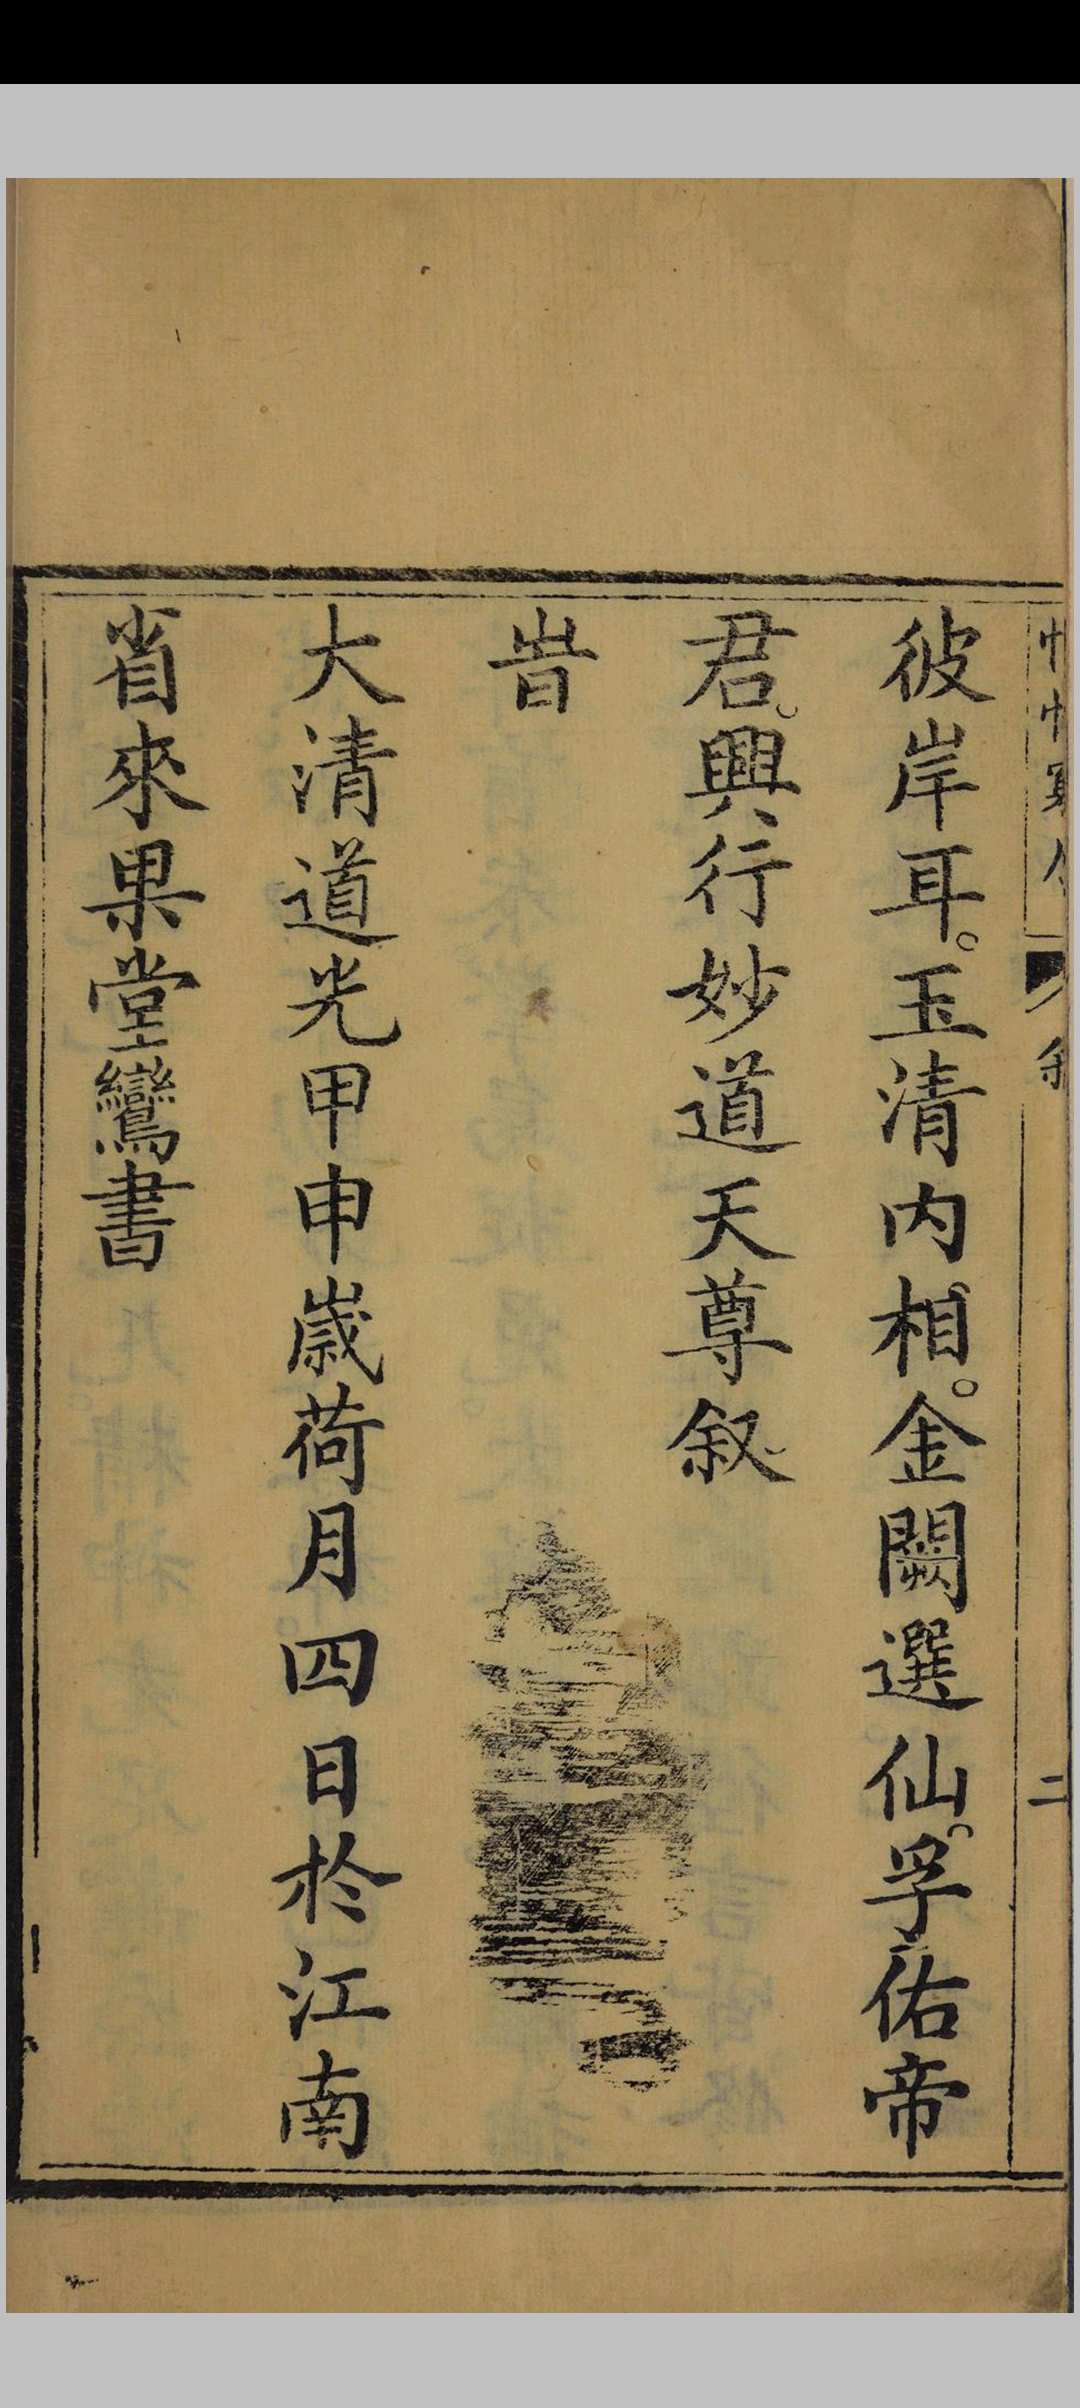 彼岸耳。玉清内相。金闕選仙。孚佑帝
君。興行妙道天尊叙
旹
大清道光甲申歲荷月四日於江南
省來果堂鸞書
二